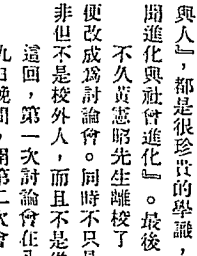 與人』，都是很珍貴的學識，
聞進化與社會進化』。最後
不久黃憲昭先生離校了
便改成爲討論會。同時不只是
非但不是校外人，而且不是
這回，第一次討論會在
九日晚間，開第二次會